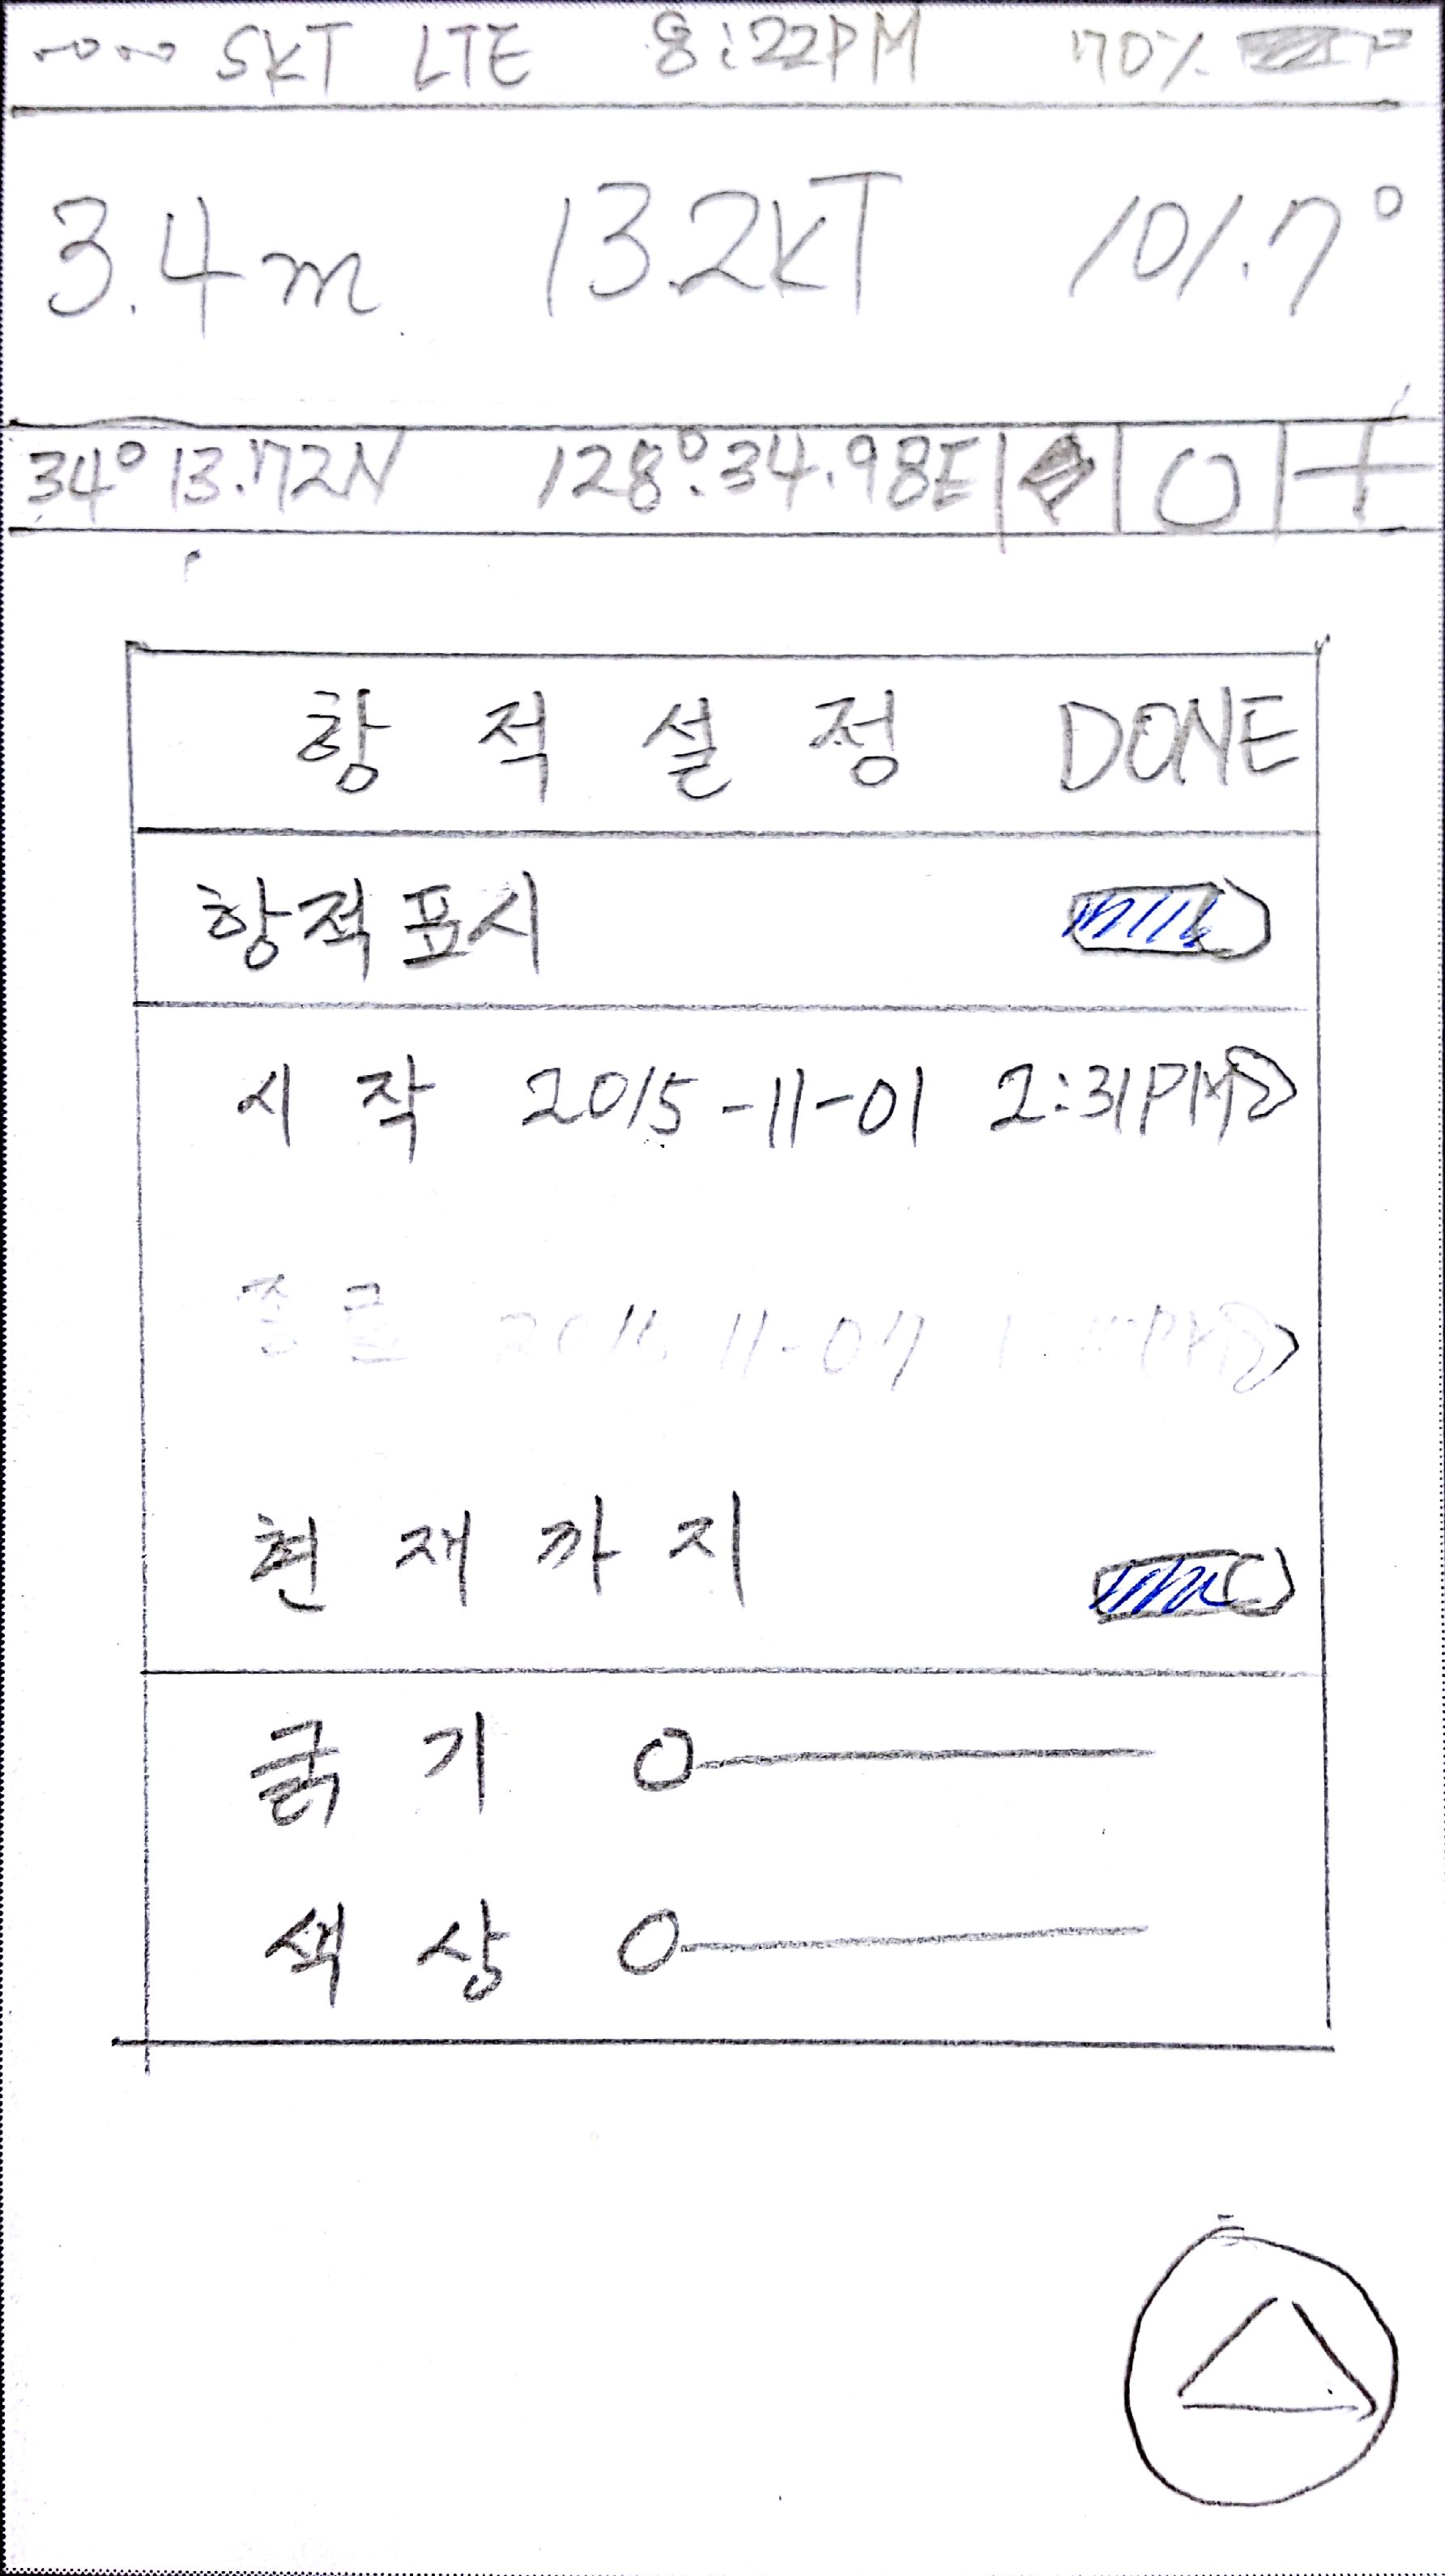 SKT LTE 8:22PM 70%
3.4m 13.2kT 101.7°
34° 13.72N 128°.34.98E
항적설정 DONE
항적표시
시작 2015-11-01 2:31PM
종료 11-07
현재까지
굵기
색상